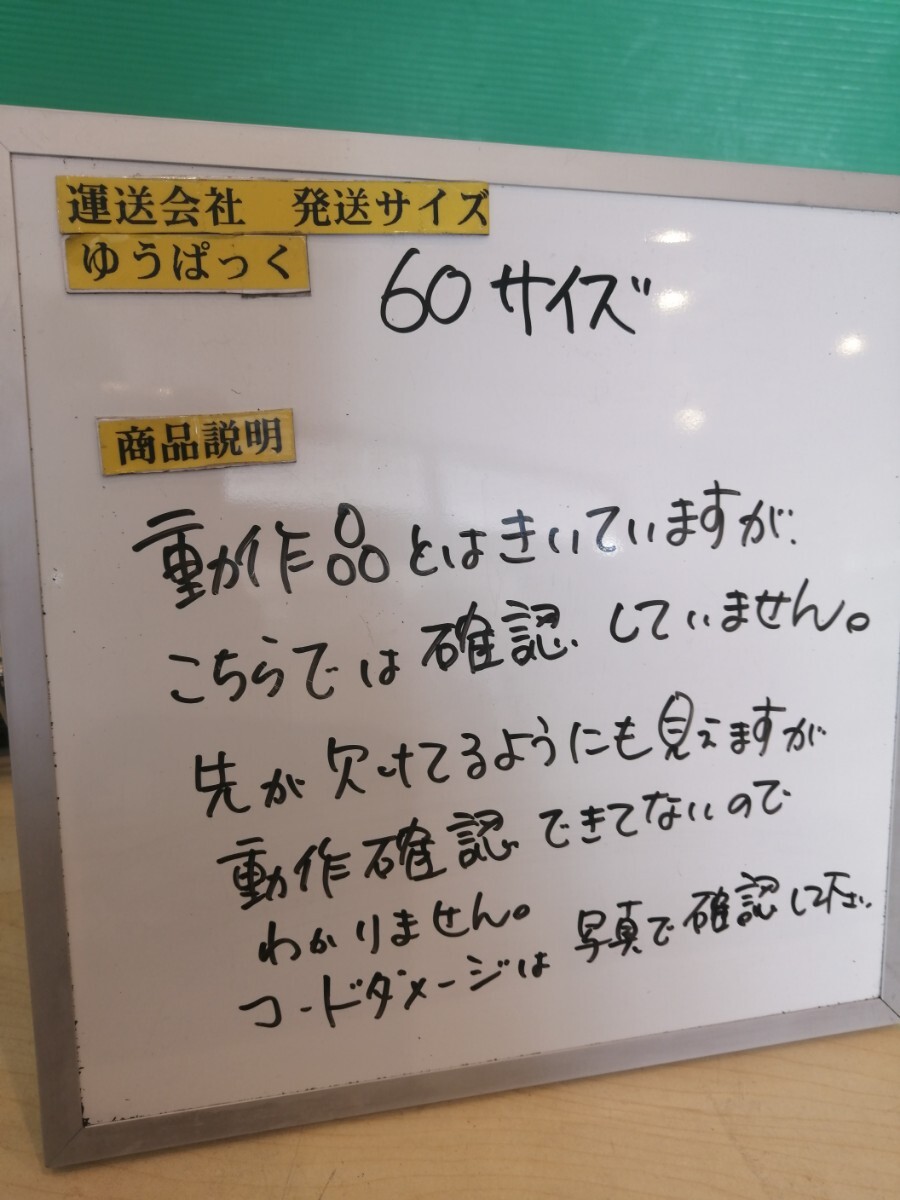 運送会社　発送サイズ
ゆうぱっく
60サイズ
商品説明
動作品とはきいていますが、
こちらでは確認していません。
先が欠けてるようにも見えますが
動作確認できてないので
わかりません。
コードダメージは写真で確認して下さい。